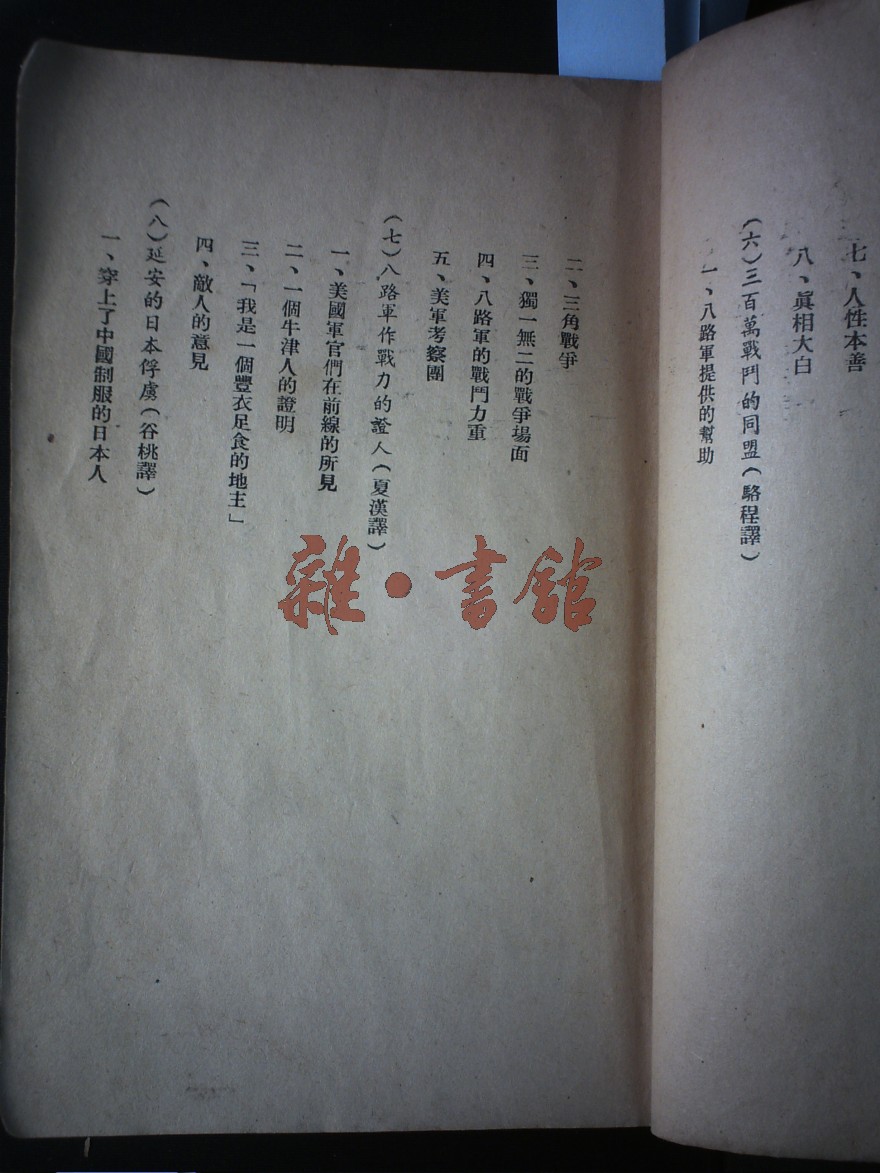 七、人性本善
八、眞相大白
（六）三百萬戰鬥的同盟（駱程譯）
一、八路軍提供的幫助
二、三角戰爭
三、獨一無二的戰爭場面
四、八路軍的戰鬥力重
五、美軍考察團
（七）八路軍作戰力的證人（夏漢譯）
一、美國軍官們在前線的所見
二、一個牛津人的證明
三、「我是一個豐衣足食的地主」
四、敵人的意見
（八）延安的日本俘虜（谷桃譯）
一、穿上了中國制服的日本人
雜·書館